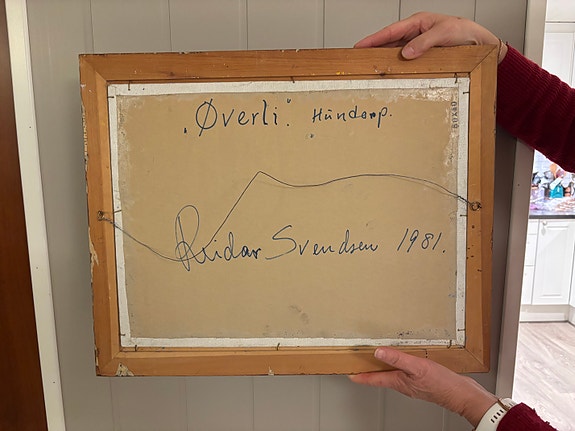 „Øverli“. Hundorp.
Reidar Svendsen 1981.
50X40